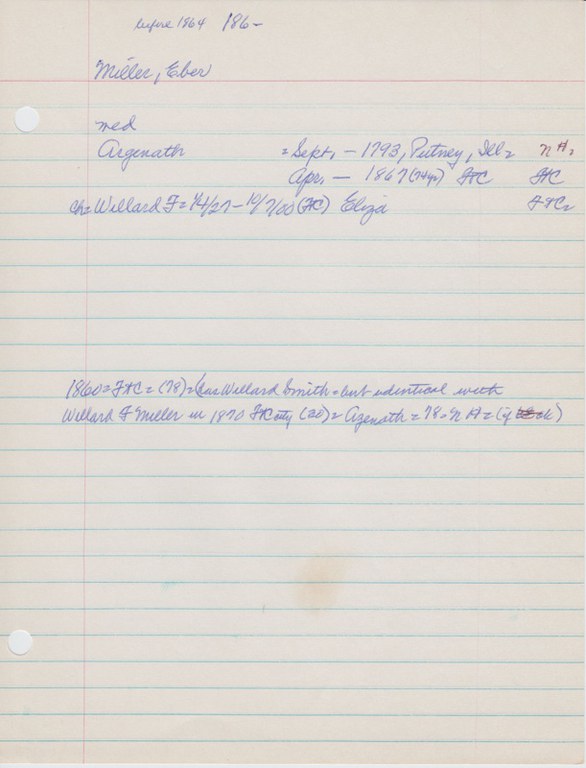 before 1864 186-
Miller, Eber
med
Argenath = Sept, - 1793, Putney, Ill= N H,
Apr, - 1867 (74yr) FtC FtC
ch= Willard F = 4/27 - 10/7/00 (FtC) Eliza FtC,
1860 = FtC = (78) = Willard Smith = but identical with
Willard F Miller in 1870 FtC city (20) = Azenath = 78. N H = (if ok)